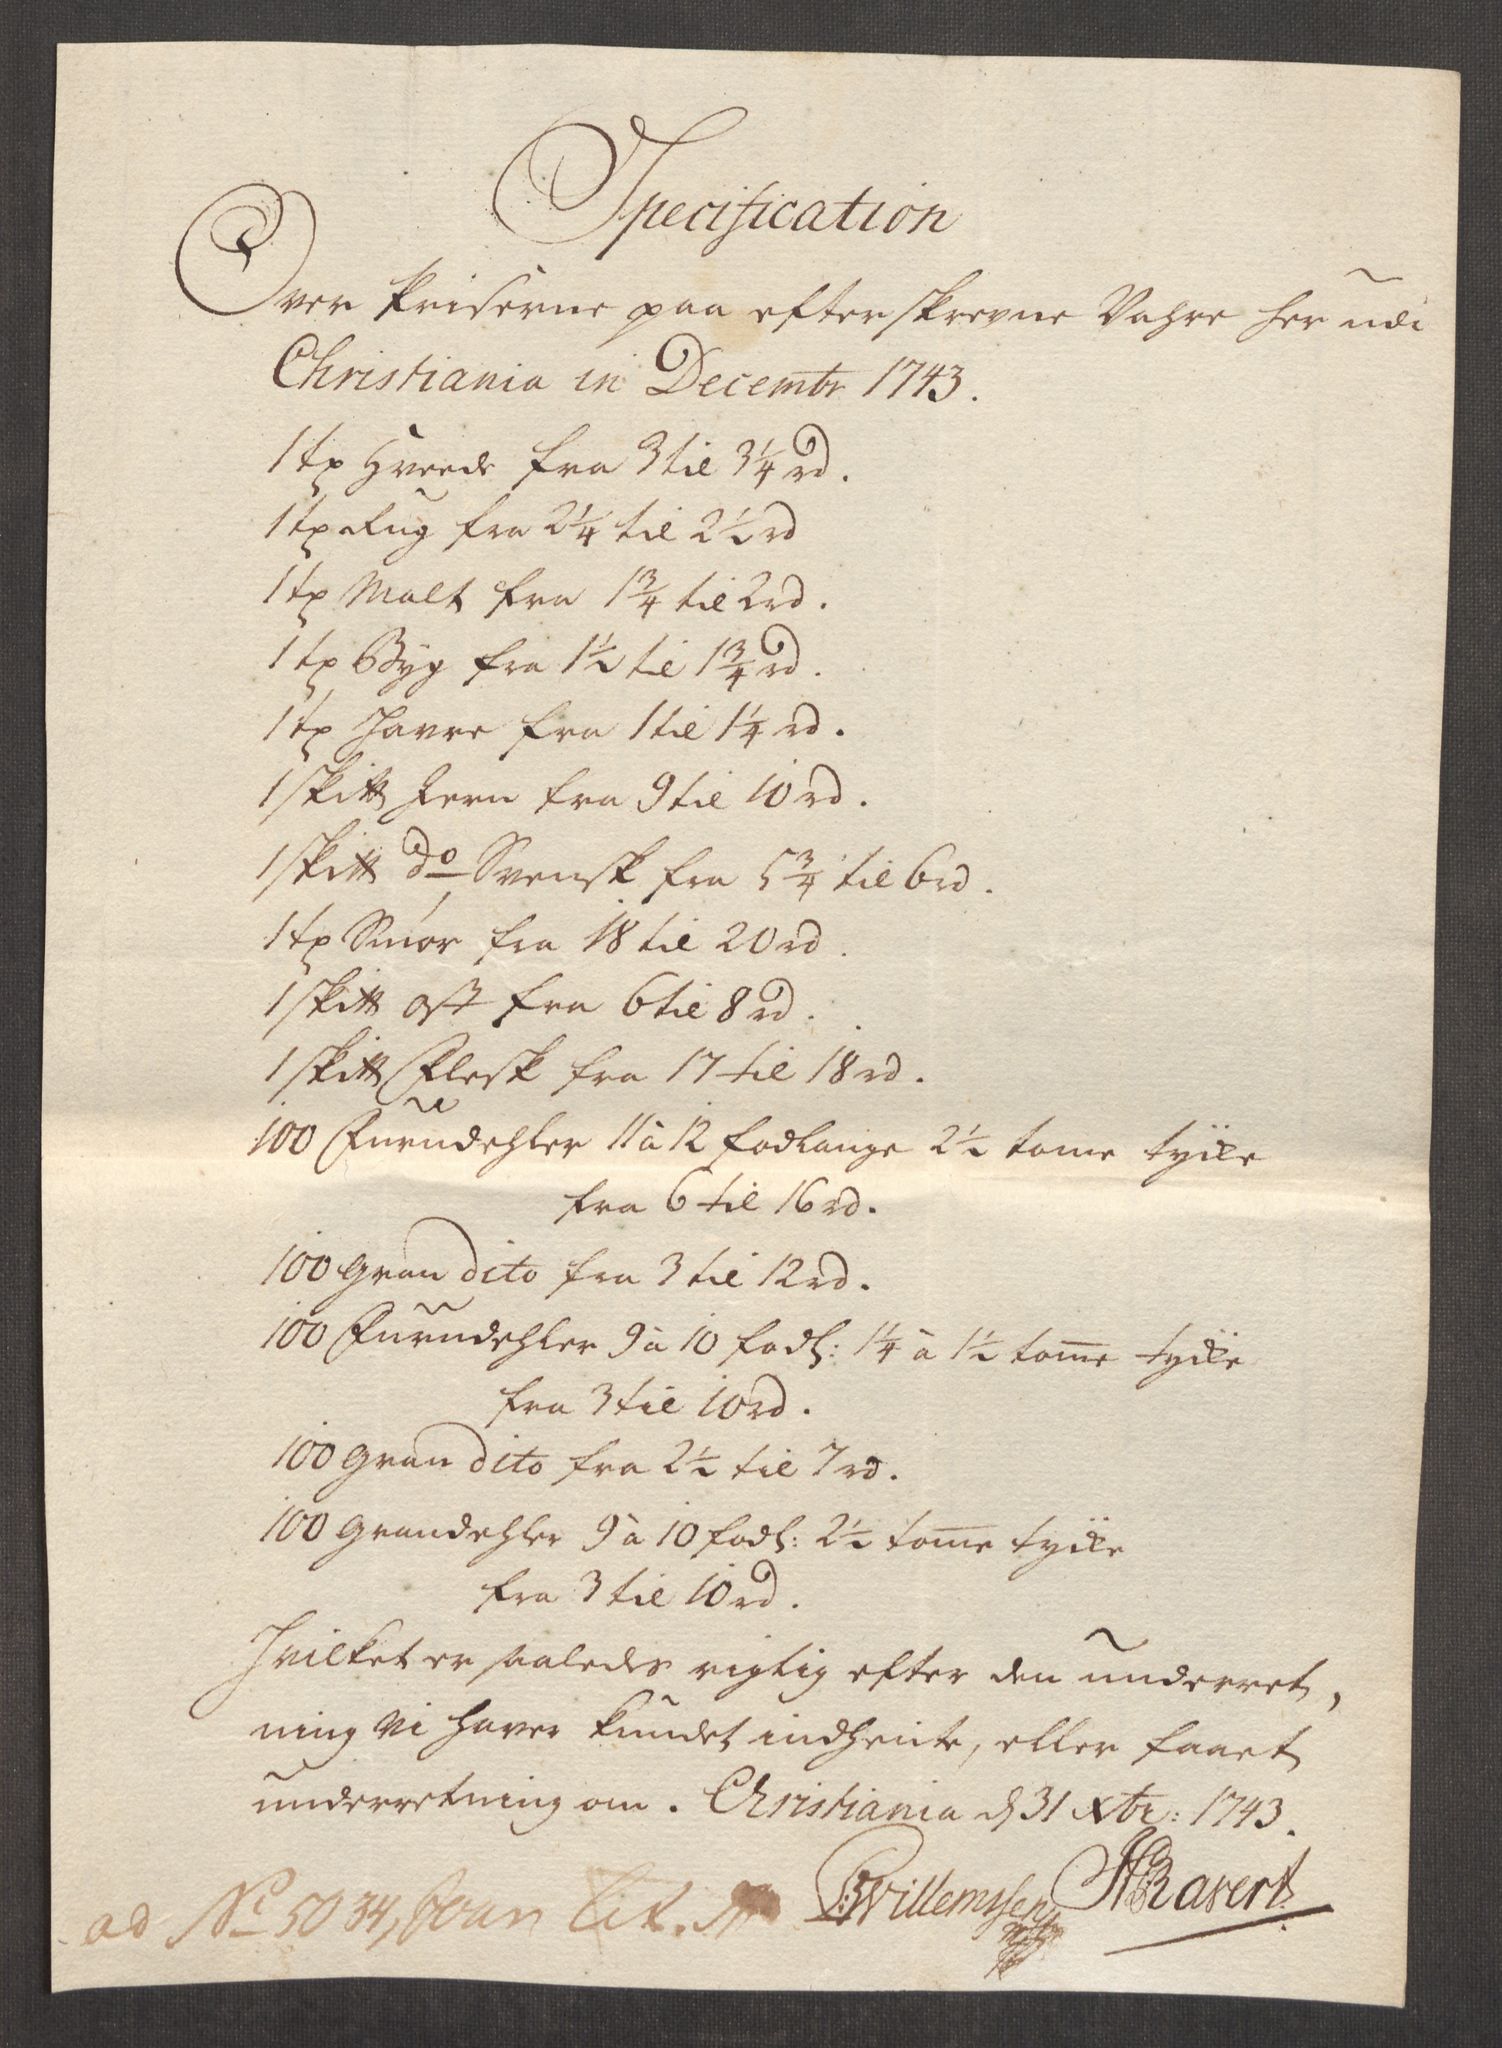 Specification
Over Priserne paa efterskrevne Vahre her udi
Christiania in Decembr 1743.
1 tp Hveede fra 3 til 3¼ rd.
1 tp Rug fra 2¼ til 2½ rd
1 tp Malt fra 1¾ til 2 rd.
1 tp Byg fra 1½ til 1¾ rd.
1 tp Havre fra 1 til 1¼ rd.
1 skitt Jern fra 9 til 10 rd.
1 skitt do Svensk fra 5¾ til 6 rd.
1 tp Smør fra 18 til 20 rd.
1 skitt ost fra 6 til 8 rd.
1 skitt Flesk fra 17 til 18 rd.
100 Furudehler 11 à 12 fodlange 2½ tome tycke
fra 6 til 16 rd.
100 gran dito fra 3 til 12 rd.
100 Furudehler 9 à 10 fodl: 1¼ à 1½ tome tycke
fra 3 til 10 rd.
100 gran dito fra 2½ til 7 rd.
100 grandehler 9 à 10 fodl: 2½ tome tycke
fra 3 til 10 rd.
Hvilket er saaledes rigtig efter den underret,
ning vi haver kundet indhente, eller faaet
underretning om. Christiania d 31 xbr: 1743.
Willemssen HRavert
ad No 5034, Lit.